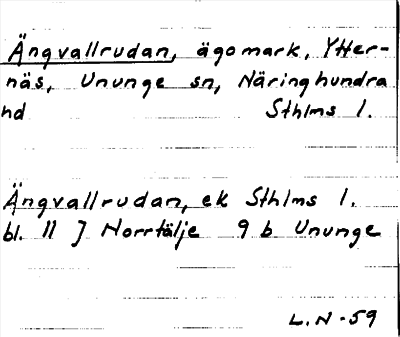 Ängvallrudan, ägomark, Ytter-
näs, Ununge sn, Näringhundra
hd Sthlms l.
Ängvallrudan, ek Sthlms l.
bl. 11 J Norrtälje 9 b Ununge
L.N-59